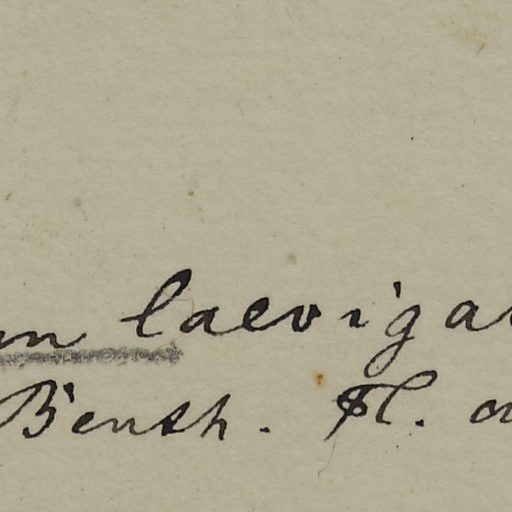 un laevigat
Benth. Fl. a